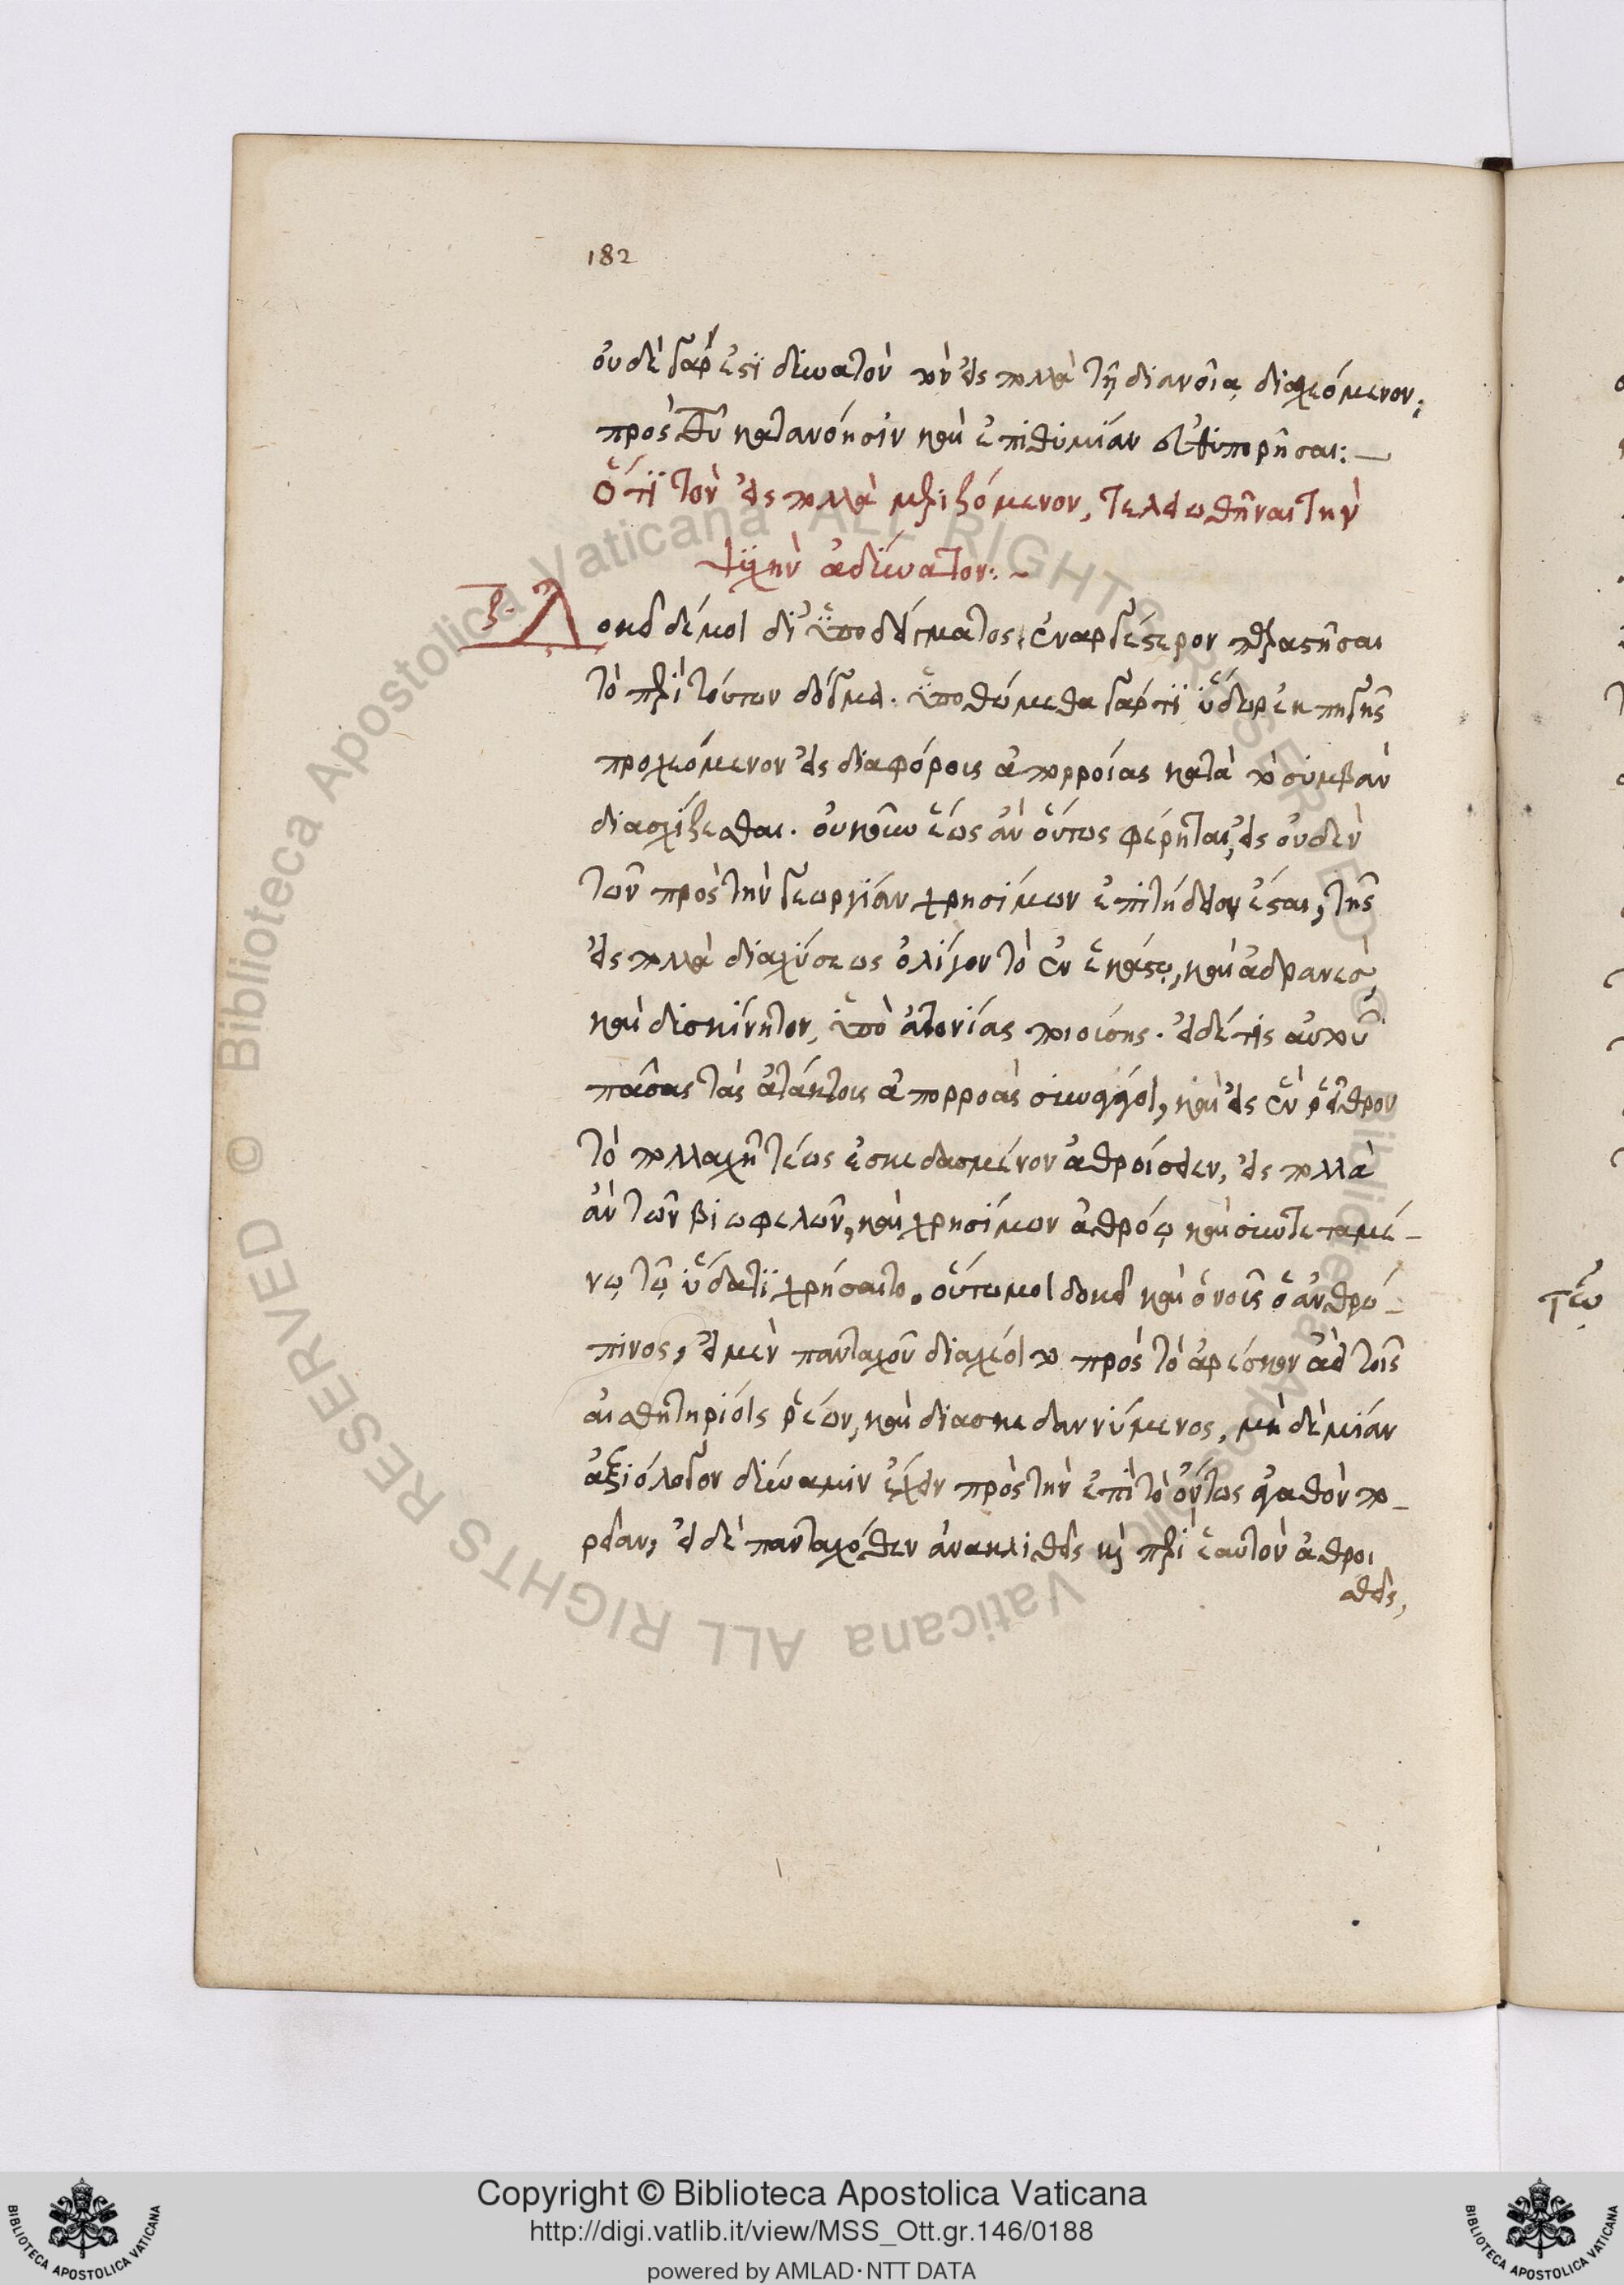 182
οὐδὲ γάρ ἐστι δυνατὸν τὸν εἰς πολλὰ τῇ διανοίᾳ διαχεόμενον,
πρὸς θῦ κατανόησιν καὶ ἐπιθυμίαν εὐθυπορῆσαι: —
Ὅτι τὸν εἰς πολλὰ μεριζόμενον, τελειωθῆναι τὴν
ψυχὴν ἀδύνατον: ~
ζ. Δοκεῖ δέ μοι δι' ὑποδείγματος ἐναργέστερον παραστῆσαι
τὸ περὶ τούτων δόγμα. ὑποθώμεθα γάρ τι ὕδωρ ἐκ πηγῆς
προχεόμενον εἰς διαφόρους ἀπορροίας κατὰ τὸ συμβὰν
διασχίζεσθαι. οὐκοῦν ἕως ἂν οὕτως φέρηται, εἰς οὐδὲν
τῶν πρὸς τὴν γεωργίαν χρησίμων ἐπιτήδειον ἔσται, τῆς
εἰς πολλὰ διαχύσεως ὀλίγον τὸ ἐν ἑκάστῳ, καὶ ἀδρανὲς,
καὶ δυσκίνητον, ὑπὸ ἀτονίας ποιούσης. εἰ δέ τις αὐτοῦ
πάσας τὰς ἀτάκτους ἀπορροὰς συναγάγοι, καὶ εἰς ἓν ῥεῖθρον
τὸ πολλαχῆ τέως ἐσκεδασμένον ἀθροίσειεν, εἰς πολλὰ
ἂν τῶν βιωφελῶν, καὶ χρησίμων ἀθρόῳ καὶ συντεταμέ-
νῳ τῷ ὕδατι χρήσαιτο. οὕτω μοι δοκεῖ καὶ ὁ νοῦς ὁ ἀνθρώ-
πινος, εἰ μὲν πανταχοῦ διαχέοιτο πρὸς τὸ ἀρέσκον ἀεὶ τοῖς
αἰσθητηρίοις ῥέων, καὶ διασκεδαννύμενος, μηδεμίαν
ἀξιόλογον δύναμιν ἔχειν πρὸς τὴν ἐπὶ τὸ ὄντως ἀγαθὸν πο-
ρείαν, εἰ δὲ πανταχόθεν ἀνακληθεὶς κὶ περὶ ἑαυτὸν ἀθροι
σθεὶς,
Copyright © Biblioteca Apostolica Vaticana
http://digi.vatlib.it/view/MSS_Ott.gr.146/0188
powered by AMLAD·NTT DATA